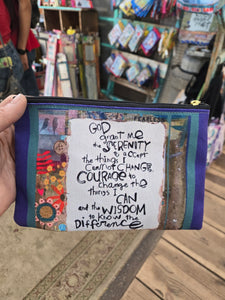 FEARLESS
GOD
grant me
the SERENITY
to accept
the things I
CANNOT CHANGE,
COURAGE to
change the
things I
CAN
and the WISDOM
to know the
DIFFERENCE